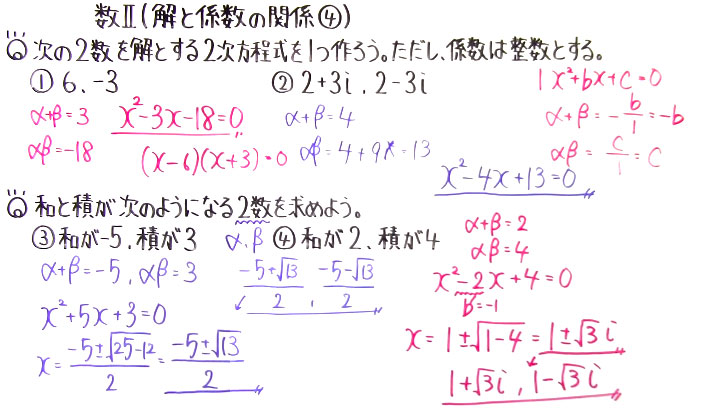 数Ⅱ(解と係数の関係④)
次の2数を解とする2次方程式を1つ作ろう。ただし、係数は整数とする。
① 6、-3
α+β=3
αβ=-18
x²-3x-18=0
(x-6)(x+3)=0
② 2+3i、2-3i
α+β=4
αβ=4+9=13
x²-4x+13=0
1x²+bx+c=0
α+β=-b/1=-b
αβ=c/1=c
和と積が次のようになる2数を求めよう。
α、β
③ 和が-5、積が3
α+β=-5、αβ=3
x²+5x+3=0
x=(-5±√(25-12))/2=(-5±√13)/2
(-5+√13)/2、(-5-√13)/2
④ 和が2、積が4
α+β=2
αβ=4
x²-2x+4=0
b'=-1
x=1±√(1-4)=1±√3i
1+√3i、1-√3i